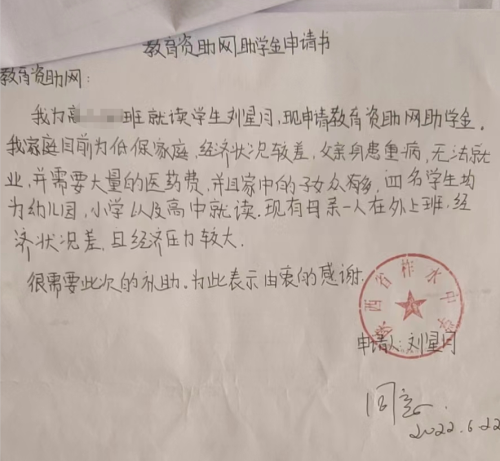 教育资助网助学金申请书
教育资助网:
我为高班就读学生刘星月,现申请教育资助网助学金。
我家庭目前为低保家庭,经济状况较差,父亲身患重病,无法就
业,并需要大量的医药费,并且家中的子女众有多,四名学生均
为幼儿园,小学以及高中就读.现有母亲一人在外上班.经
济状况差,且经济压力较大.
很需要此次的补助.为此表示由衷的感谢.
陕西省柞水中学
申请人:刘星月
同意
2022.6.22